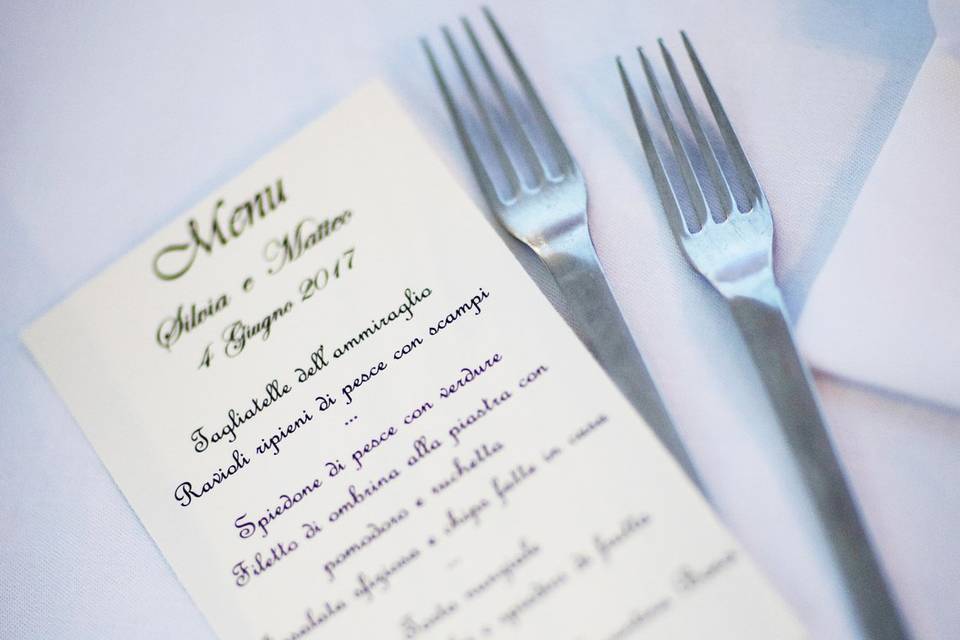 Menu
Silvia e Matteo
4 Giugno 2017
Tagliatelle dell'ammiraglio
Ravioli ripieni di pesce con scampi
...
Spiedone di pesce con verdure
Filetto di ombrina alla piastra con
pomodoro e ruchetta
sfiziosa e chips fatte in casa
...
Torta nuziale
e spiedini di frutta